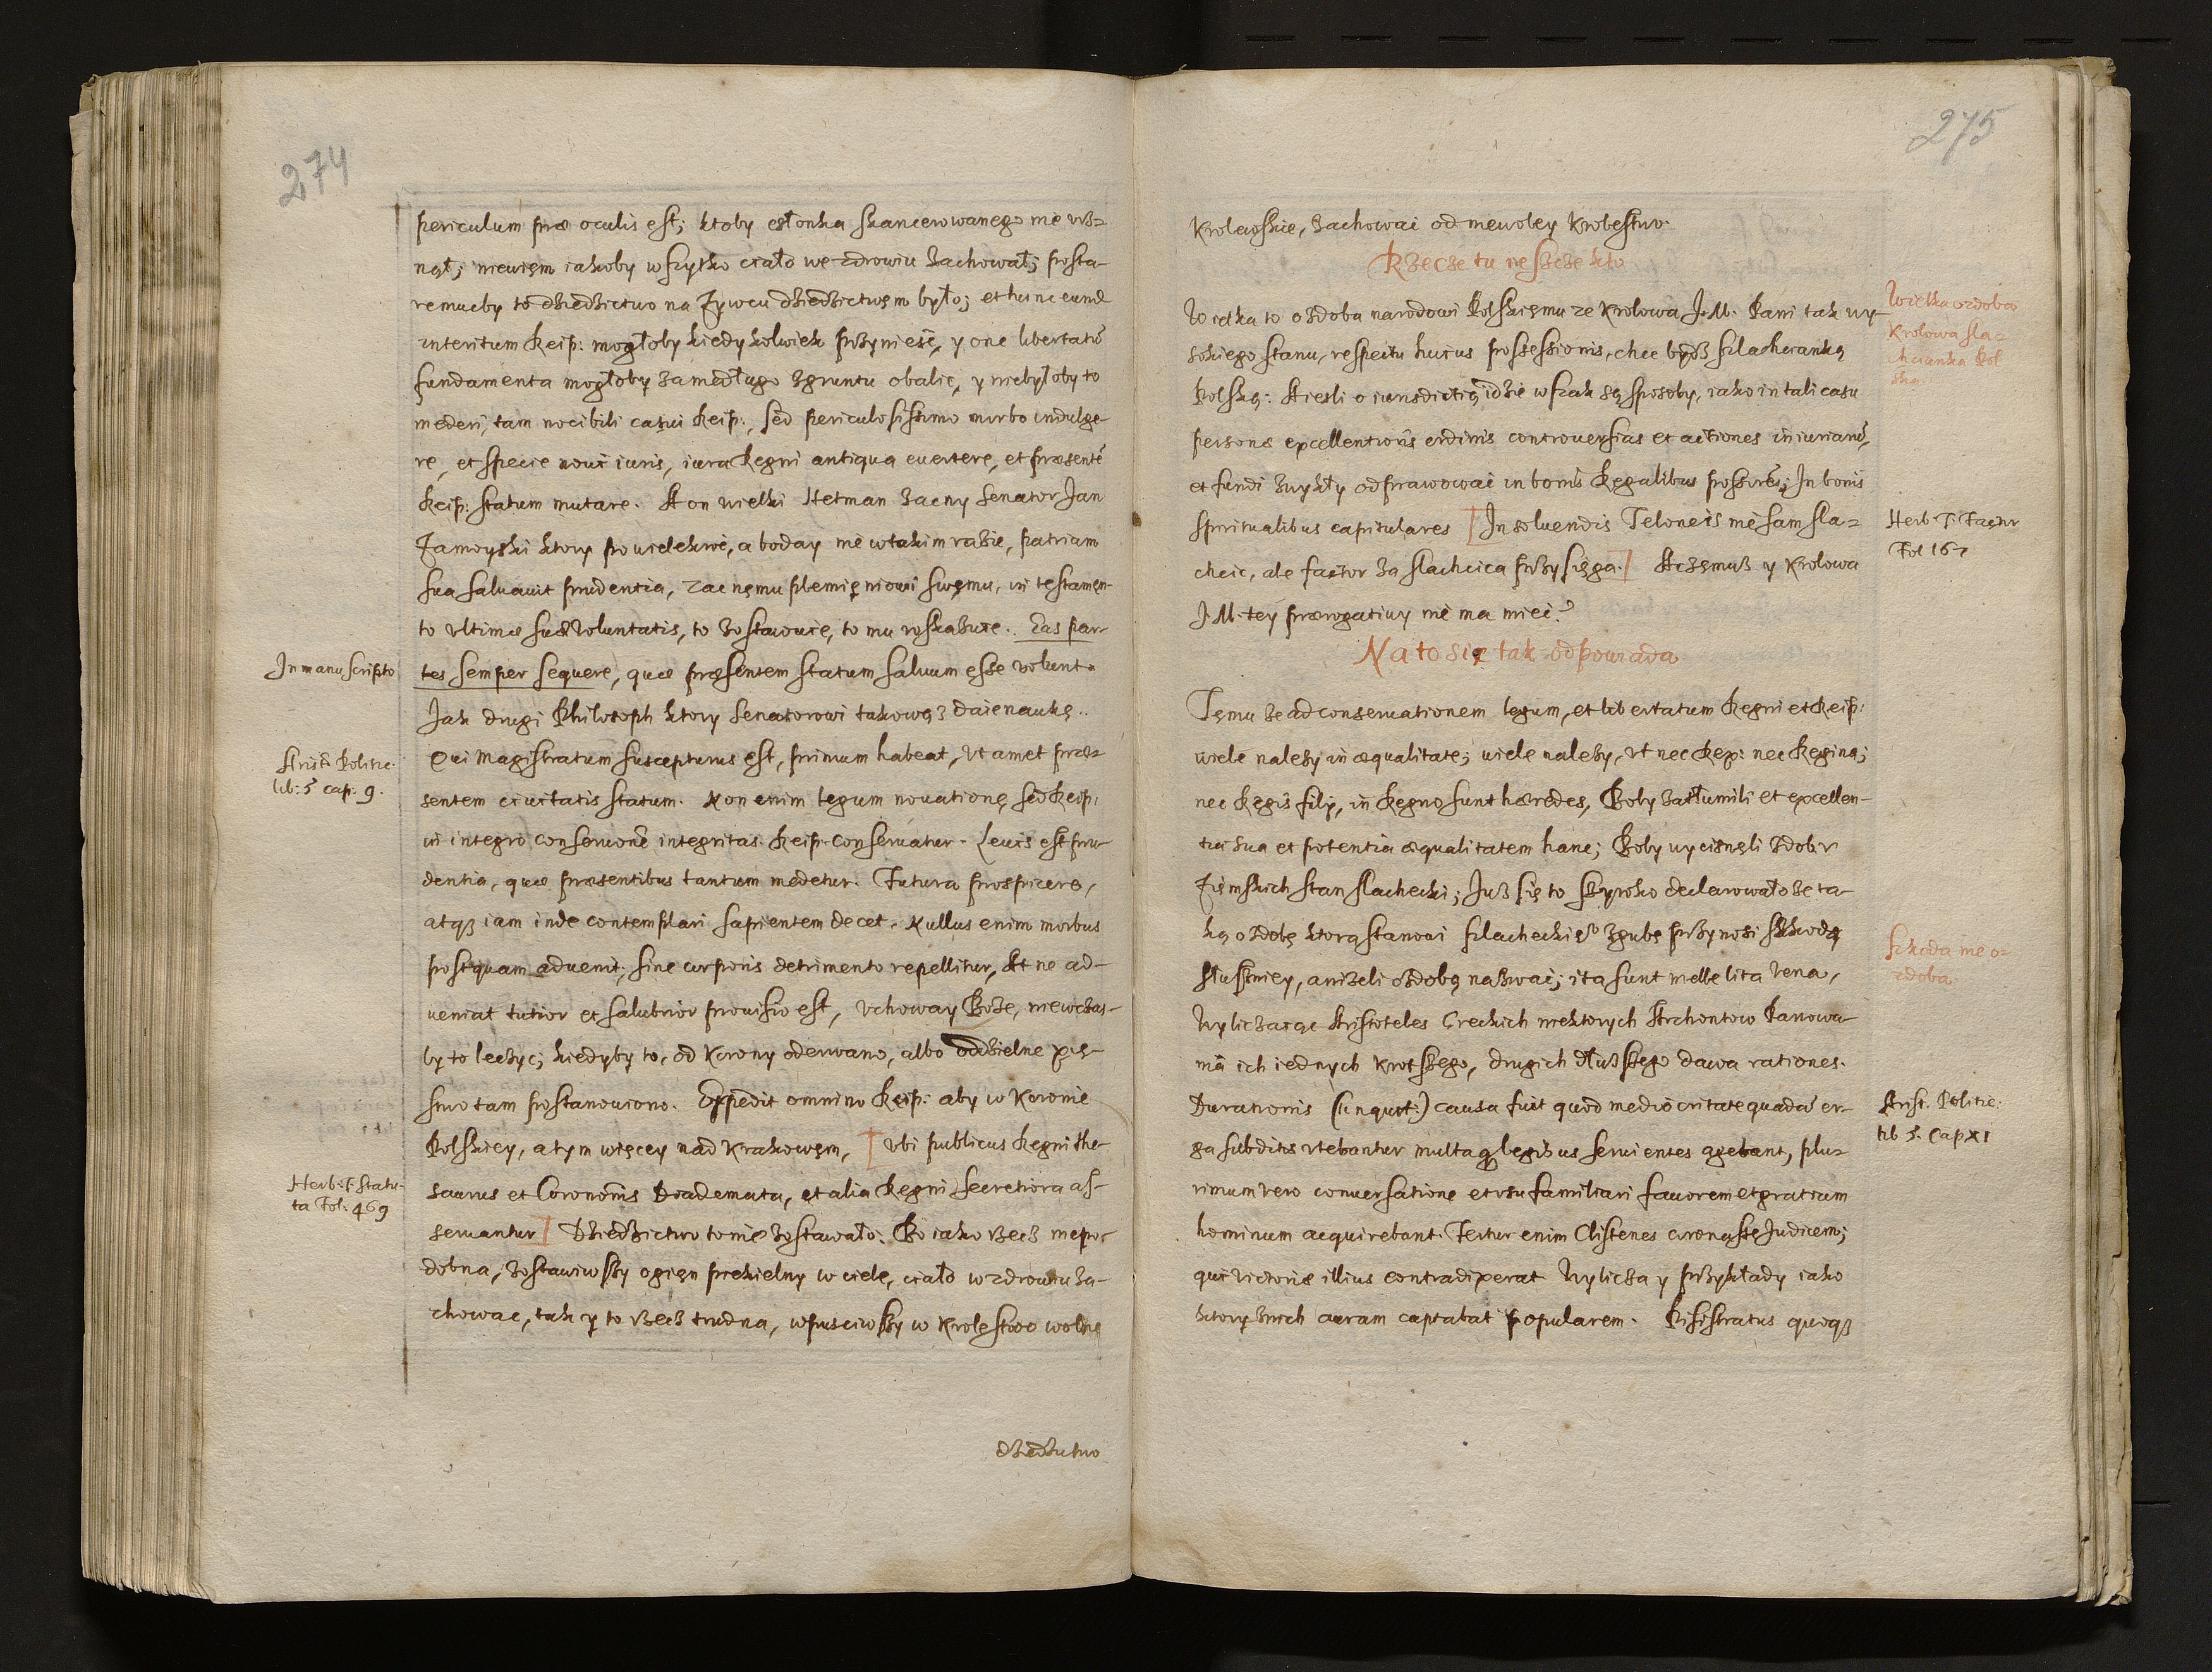 274
periculum præ oculis est; ktoby członka skancerowanego nie urz-
nął; niewięm iakoby wszytko ciało we zdrowiu zachował; posta-
remuby to dziedzictwo na Zywcu dziedzictwęm było; et hunc eundē
interitum Reip: mogłoby kiedykolwiek przynieść, y one libertatū
fundamenta mogłoby zamedługo zgruntu obalic, y niebyłoby to
mederi, tam nocibili casui Reip:, sed periculosissimo morbo indulge-
re, et specie noui iuris, iura Regni antiqua euertere, et præsentē
Reip: statum mutare. A on wielki Hetman zacny Senator Jan
Zamoyski ktory po wielekroć, a boday nie w takim razie, patriam
sua saluauit prudentia, zacnęmu plemięniowi swęmu, in testamen-
to ultimæ suæ voluntatis, to zostawuie, to mu roskazuie. Eas par-
In manuscripto
tes semper sequere, quæ præsentem statum saluum esse volunt.
Jak drugi Philosoph ktory Senatorowi takową daie naukę..
Arist: Politic.
lib: 5 cap: 9.
Qui Magistratum suscepturus est, primum habeat, ut amet præ-
sentem ciuitatis statum. Non enim legum nouatione, sed Reip:
in integro conseruone integritas Reip. conseruatur. Leuis est pru-
dentia, quæ præsentibus tantum medetur. Futura prospicere,
atqz iam inde contemplari sapientem decet. Nullus enim morbus
postquam aduenit; sine corporis detrimento repellitur, At ne ad-
ueniat tutior et salubrior prouisio est, Uchoway Boże, niewczas-
by to leczyc; kiedyby to, od Korony oderwano, albo oddzielne xię-
stwo tam postanowiono. Expedit omnino Reip: aby w Koronie
Polskiey, a tym więcey nad Krakowęm, ubi publicus Regni the-
Herb: f: Statu-
ta Fol: 469
saurus et Coronōnis Diademata, et alia Regni secretiora as-
seruantur Dziedzictwo to nie zostawało. Bo iako rzecz niepo-
dobna, zostawiwszy ogięn piekielny w ciele, ciało w zdrowiu za-
chowac, tak y to rzecz trudna, wpusciwszy w Krolestwo wolne
dziedzictwo
275
Krolewskie, zachowac od niewoley Krolestwo.
Rzecze tu ieszcze kto
Wielka ozdoba
Krolowa sla-
chcianka Pol
ska.
Wielka to ozdoba narodowi Polskięmu ze Krolowa J. M. Pani tak wy-
sokiego stanu, respectu huius possessionis, chce bydz szlachcianką
Polską: A iesli o iurisdictią idzie wszak są sposoby, iako in tali casu
personæ excellentioris ordinis controuersias et actiones iniuriarū,
et fundi zwykły odprawowac in bonis Regalibus possores; In bonis
Herb. T. Factor
Fol 167
spiritualibus capitulares In soluendis Teloneis nie sam sla-
chcic, ale factor za slachcica przysięga. A częmuz y Krolowa
J. M. tey prærogatiwy nie ma mieć?
Na to się tak odpowiada
Tęmu ze ad conseruationem legum, et libertatum Regni et Reip:
wiele nalezy in æqualitate; wiele nalezy, ut nec Rex: nec Regina;
nec Regis filij, in Regno sunt hæredes, Boby zatłumili et excellen-
tia sua et potentia æqualitatem hanc; Boby wycisnęli z dobr
Zięmskich stan slachecki; Juz się to szyroko declarowało ze ta-
Szkoda nie o-
zdoba.
ką ozdobę ktora stanowi szlacheckię° zgubę przynosi szkodą
słuszniey, anizeli ozdobą nazwać; ita sunt melle lita vena,
Wyliczaiąc Aristoteles Greckich niektorych Archontow Panowa-
nia ich iednych krotszego, drugich dłuzszego dawa rationes.
Arist. Politic:
lib 5. Cap XI
Durationis (inquit:) causa fuit quod mediocritate quadā er-
ga subditos utebantur multaqz legibus seruientes agebant, plu-
rimum vero conuersatione et usu familiari fauorem et gratiam
hominum acquirebant. Fertur enim Clistenes coronasse Judicem;
qui victoriæ illius contradixerat Wylicza y przykłady iako
ktory z nich auram captabat popularem. Pisistratus quoqz